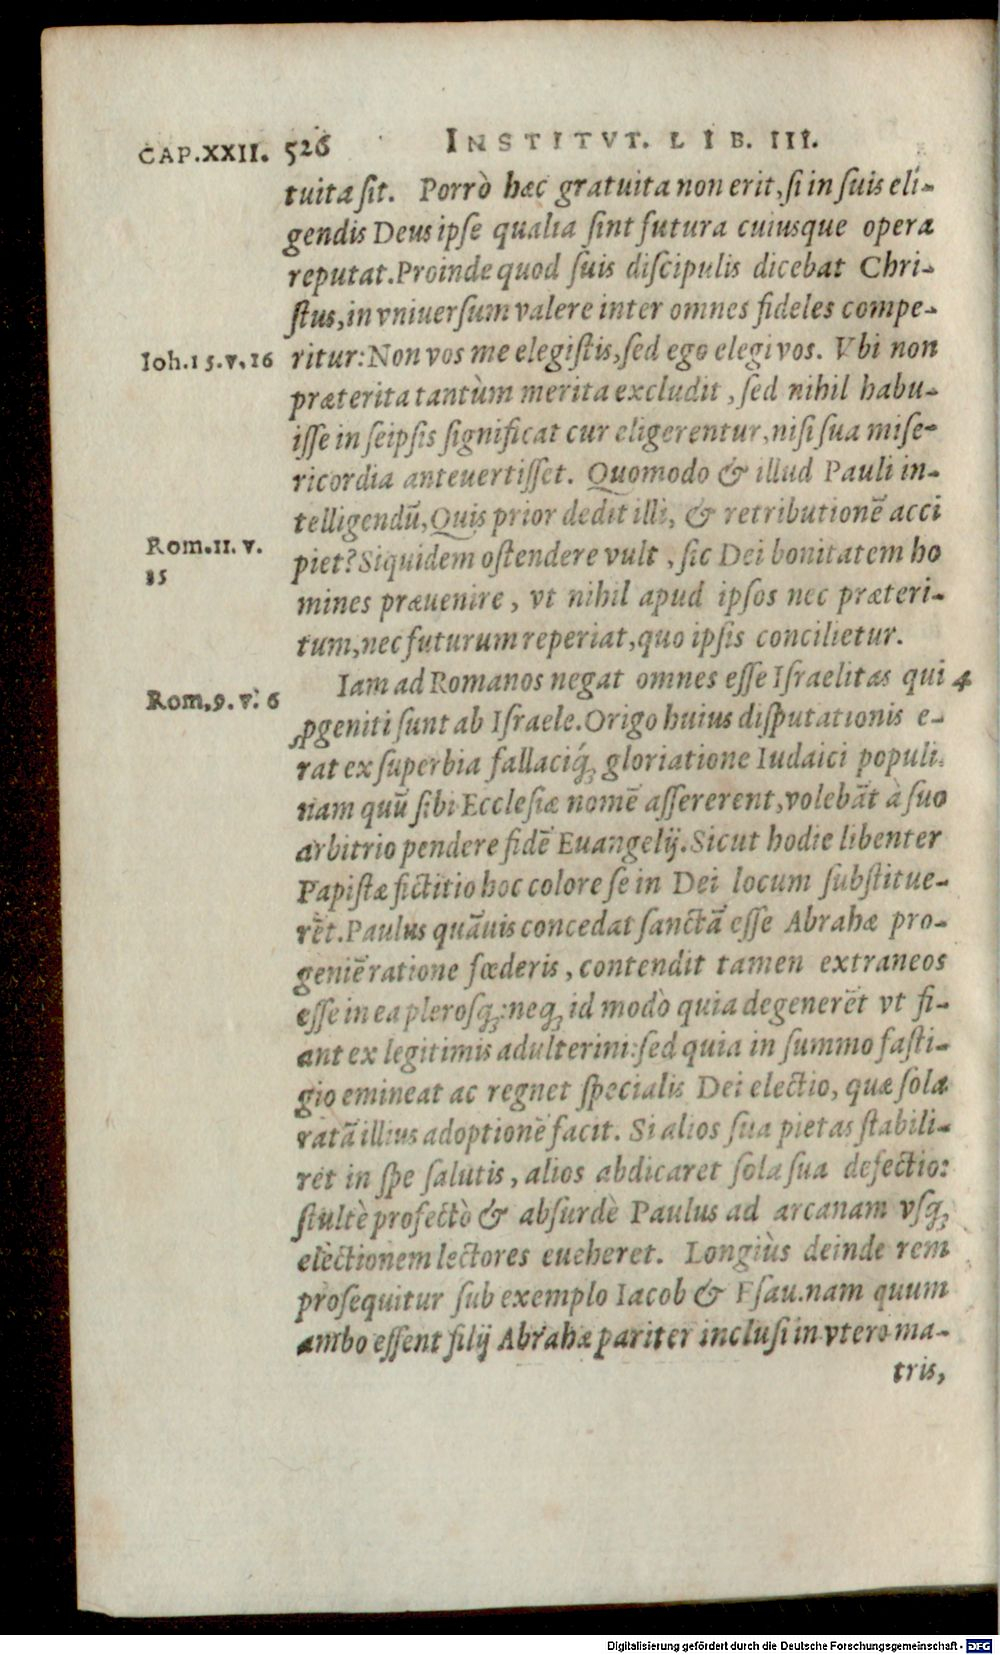 CAP.XXII. 526 INSTITVT. LIB. III.
tuita sit. Porrò hæc gratuita non erit, si in suis eli-
gendis Deus ipse qualia sint futura cuiusque opera
reputat. Proinde quod suis discipulis dicebat Chri-
stus, in vniuersum valere inter omnes fideles compe-
Ioh.15.v.16 ritur: Non vos me elegistis, sed ego elegi vos. Vbi non
præterita tantùm merita excludit, sed nihil habu-
isse in seipsis significat cur eligerentur, nisi sua mise-
ricordia anteuertisset. Quomodo & illud Pauli in-
telligendū, Quis prior dedit illi, & retributionē acci
Rom.11. v.
35
piet? Siquidem ostendere vult, sic Dei bonitatem ho
mines præuenire, vt nihil apud ipsos nec præteri-
tum, nec futurum reperiat, quo ipsis concilietur.
Rom.9.v.6 Iam ad Romanos negat omnes esse Israelitas qui 4
ꝓgeniti sunt ab Israele. Origo huius disputationis e-
rat ex superbia fallaciq́; gloriatione Iudaici populi.
nam quū sibi Ecclesiæ nomē assererent, volebāt à suo
arbitrio pendere fidē Euangelij. Sicut hodie libenter
Papistæ fictitio hoc colore se in Dei locum substitue-
rēt. Paulus quāuis concedat sanctā esse Abrahæ pro-
geniē ratione fœderis, contendit tamen extraneos
esse in ea plerosq;: neq; id modò quia degenerēt vt fi-
ant ex legitimis adulterini: sed quia in summo fasti-
gio emineat ac regnet specialis Dei electio, quæ sola
ratā illius adoptionē facit. Si alios sua pietas stabili-
ret in spe salutis, alios abdicaret sola sua defectio:
stultè profectò & absurdè Paulus ad arcanam vsq;
electionem lectores eueheret. Longiùs deinde rem
prosequitur sub exemplo Iacob & Esau. nam quum
ambo essent filij Abrahæ pariter inclusi in vtero ma-
tris,
Digitalisierung gefördert durch die Deutsche Forschungsgemeinschaft - DFG